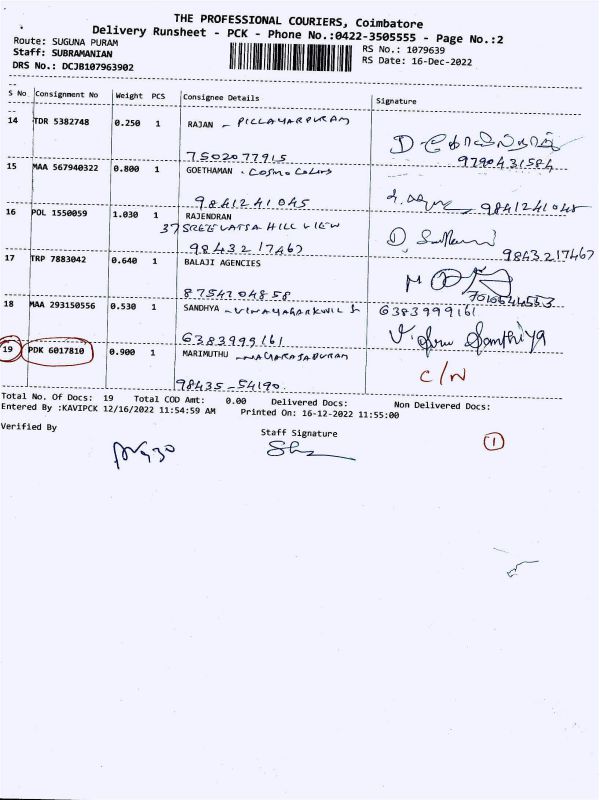 THE PROFESSIONAL COURIERS, Coimbatore
Delivery Runsheet - PCK - Phone No.:0422-3505555 - Page No.:2
Route: SUGUNA PURAM
RS No.: 1079639
Staff: SUBRAMANIAN
RS Date: 16-Dec-2022
DRS No.: DCJB107963902
S No Consignment No Weight PCS Consignee Details Signature
14 TDR 5382748 0.250 1 RAJAN - PILLAYARPURAM
7502077915 9790431584
15 MAA 567940322 0.800 1 GOETHAMAN . Cosmo Colors
9841241045 9841241045
16 POL 1550059 1.030 1 RAJENDRAN
37 SREEVATSA HILL VIEW
9843217467 9843217467
17 TRP 7883042 0.640 1 BALAJI AGENCIES
8754704858
18 MAA 293150556 0.530 1 SANDHYA - VINAYAGARKWIL St 6383999161
6383999161
19 PDK 6017810 0.900 1 MARIMUTHU - NAGARAJAPURAM
C/N
98435-54190.
Total No. Of Docs: 19 Total COD Amt: 0.00 Delivered Docs: Non Delivered Docs:
Entered By :KAVIPCK 12/16/2022 11:54:59 AM Printed On: 16-12-2022 11:55:00
Verified By Staff Signature
1